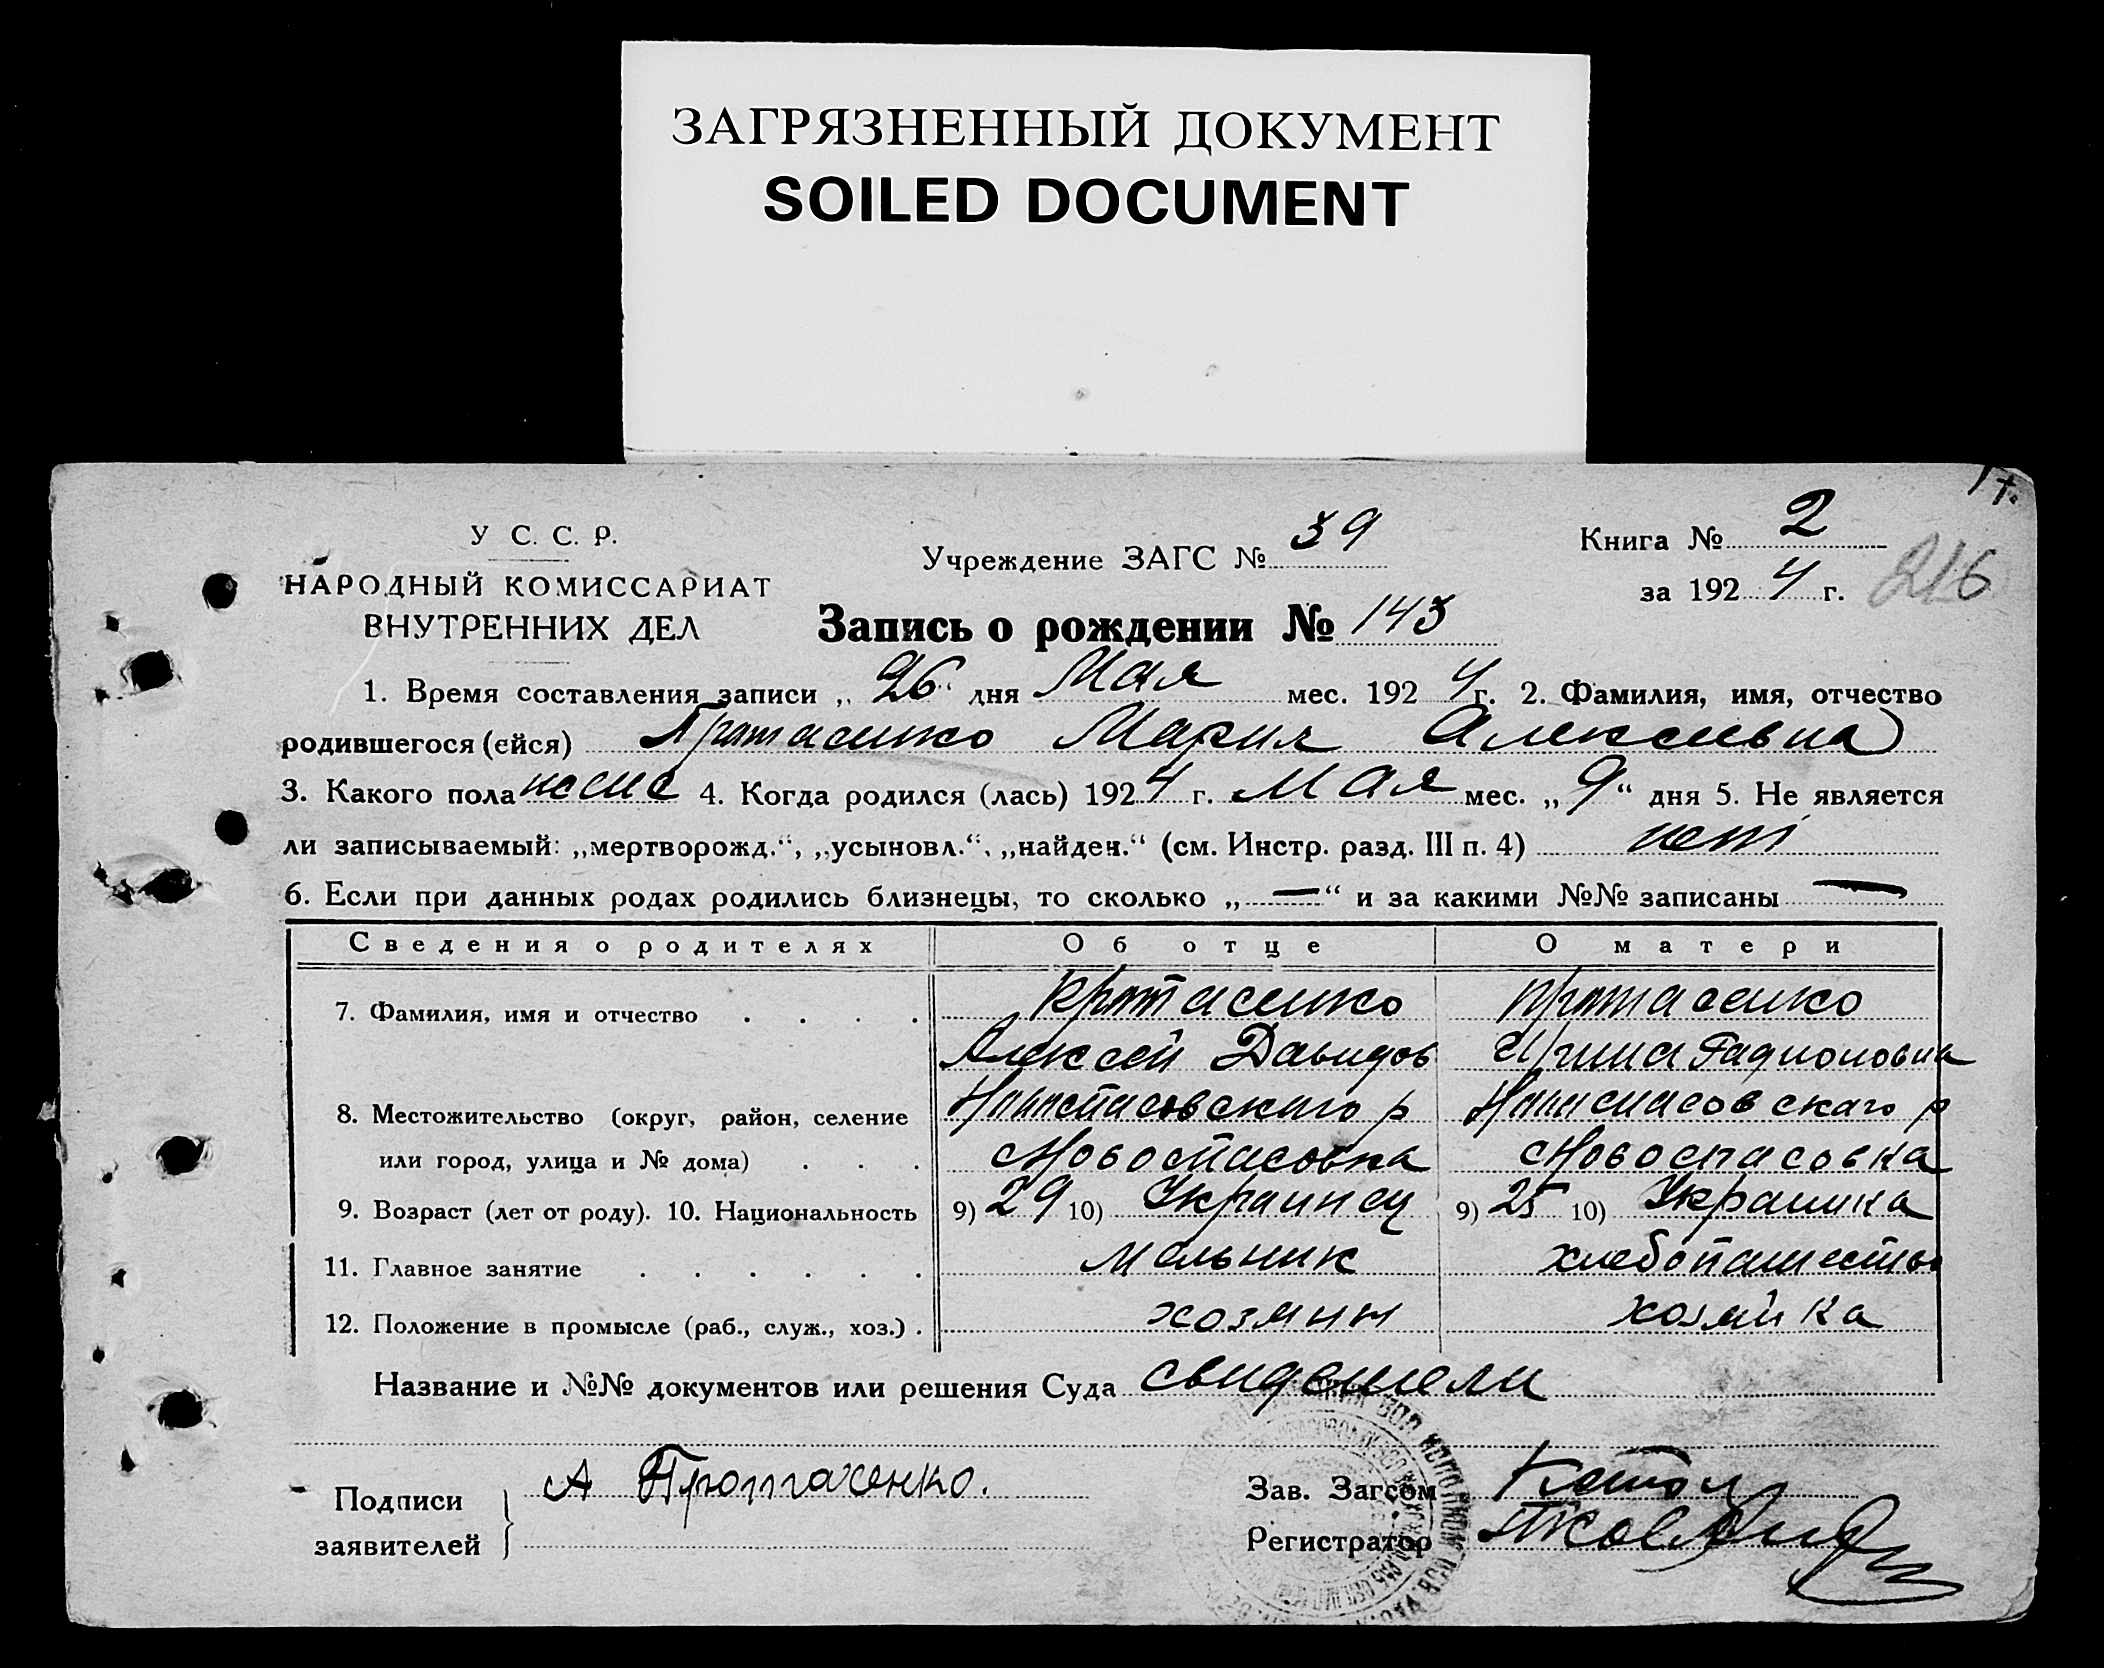 ЗАГРЯЗНЕННЫЙ ДОКУМЕНТ
SOILED DOCUMENT
У С. С. Р.
НАРОДНЫЙ КОМИССАРИАТ
ВНУТРЕННИХ ДЕЛ
Учреждение ЗАГС № 39
Книга № 2
за 1924 г.
216
Запись о рождении № 143
1. Время составления записи „26“ дня Мая мес. 1924 г. 2. Фамилия, имя, отчество
родившегося (ейся) Протасенко Мария Алексеевна
3. Какого пола женс 4. Когда родился (лась) 1924 г. Мая мес. „9“ дня 5. Не является
ли записываемый: „мертворожд.“, „усыновл.“, „найден.“ (см. Инстр. разд. III п. 4) нет
6. Если при данных родах родились близнецы, то сколько „—“ и за какими №№ записаны —
Сведения о родителях Об отце О матери
7. Фамилия, имя и отчество . . . . Протасенко Протасенко
Алексей Давидов Ирина Радионовна
8. Местожительство (округ, район, селение Новоспасовскаго р Новоспасовскаго р
или город, улица и № дома) . . . Новоспасовка Новоспасовка
9. Возраст (лет от роду). 10. Национальность 9) 29 10) Украинец 9) 25 10) Украинка
11. Главное занятие . . . . . . мельник хлебопашество
12. Положение в промысле (раб., служ., хоз.) . хозяин хозяйка
Название и №№ документов или решения Суда свидетели
Подписи
заявителей
А Протасенко.
Зав. Загсом
Регистратор